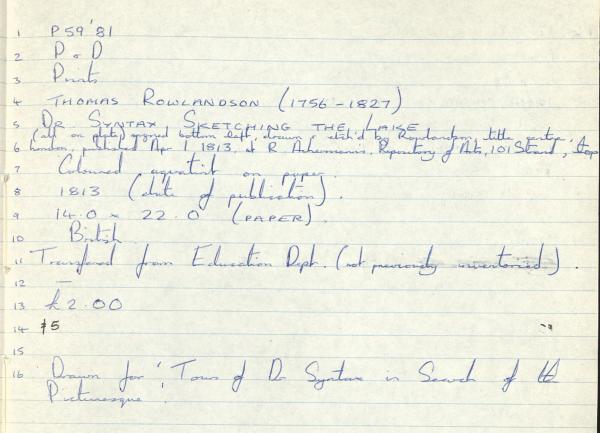 1 P59'81
2 P. D
3 Prints
4 THOMAS ROWLANDSON (1756-1827)
5 DR SYNTAX SKETCHING THE LAKE
(all on plate) signed bottom left, drawn & etch'd by Rowlandson, title centre,
6 London, published Apr 1 1813, at R Ackermann's, Repository of Arts, 101 Strand,
7 Coloured aquatint on paper.
8 1813 (date of publication).
9 14.0 x 22.0 (PAPER).
10 British
11 Transferred from Education Dept. (not previously inventoried).
12 —
13 £2.00
14 #5
15
16 Drawn for 'Tour of Dr Syntax in Search of the
Picturesque'.